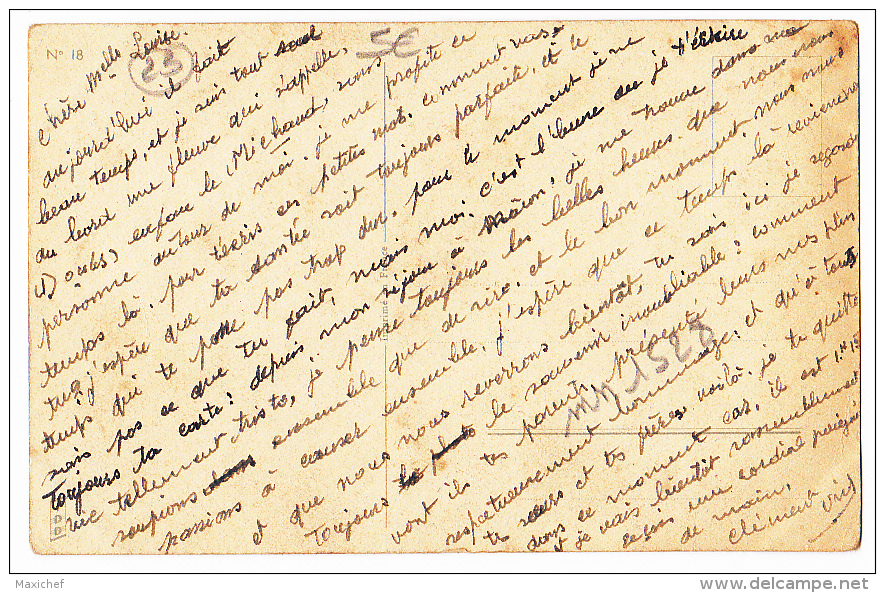 N° 18
23
5€
Chère Melle Louise.
aujourd'hui il fait
beau temps, et je suis tout seul
au bord une fleuve qui s'appelle,
ou le Michaud, sans
personne autour de moi. je me profite ce
temps là, pour t'écris ces petites mot. comment vas-
tu; j'espère que ta santée soit toujours parfaite, et le
temps qui te passe pas trop dur, pour le moment je ne
sais pas ce que tu fait, mais moi, c'est l'heure où je t'éskrire
Toujours ta carte: depuis mon séjour à Mâcon, je me trouve dans une
vie tellement triste, je pense toujours les belles heures que nous nous
soupions ensemble que de rire, et le bon moment, nous nous
passions à causer ensemble, j'espère que ce temps là reviendra
et que nous nous reverrons bientôt, tu sais ici je regarde
Toujours le photo le souvenir inoubliable: comment
vont ils tes parents, présenté leurs mes plus
respectueusement hommage; et qu'à tous
te sœurs et tes frères voilà. je te quitte
dans ce moment car, il est 1.H 15
et je vais bientôt rassemblement
reçois une cordial poignée
de main,
Clément
MM 1528
Imprimé en France
Maxichef
www.delcampe.net